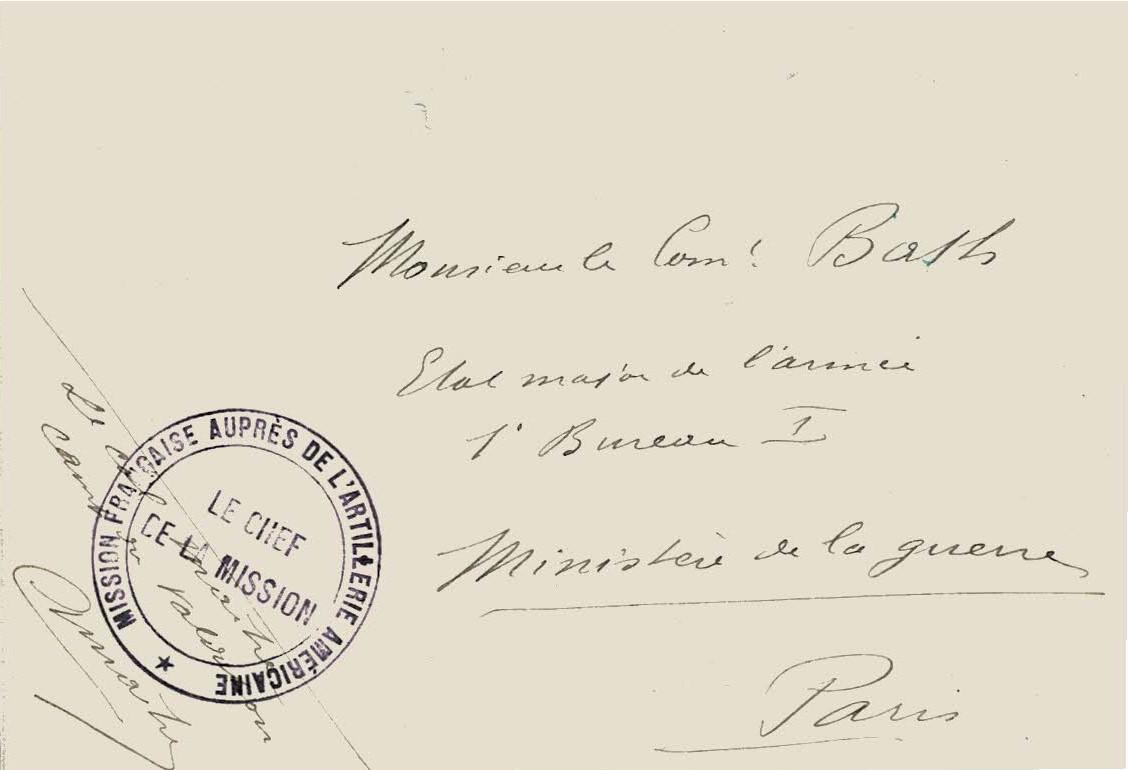 Monsieur le Comt
Etat major de l'armée
1e Bureau I
Ministère de la guerre
Paris
MISSION FRANÇAISE AUPRÈS DE L'ARTILLERIE AMÉRICAINE
LE CHEF
DE LA MISSION
Le Chef
camp Valdahon